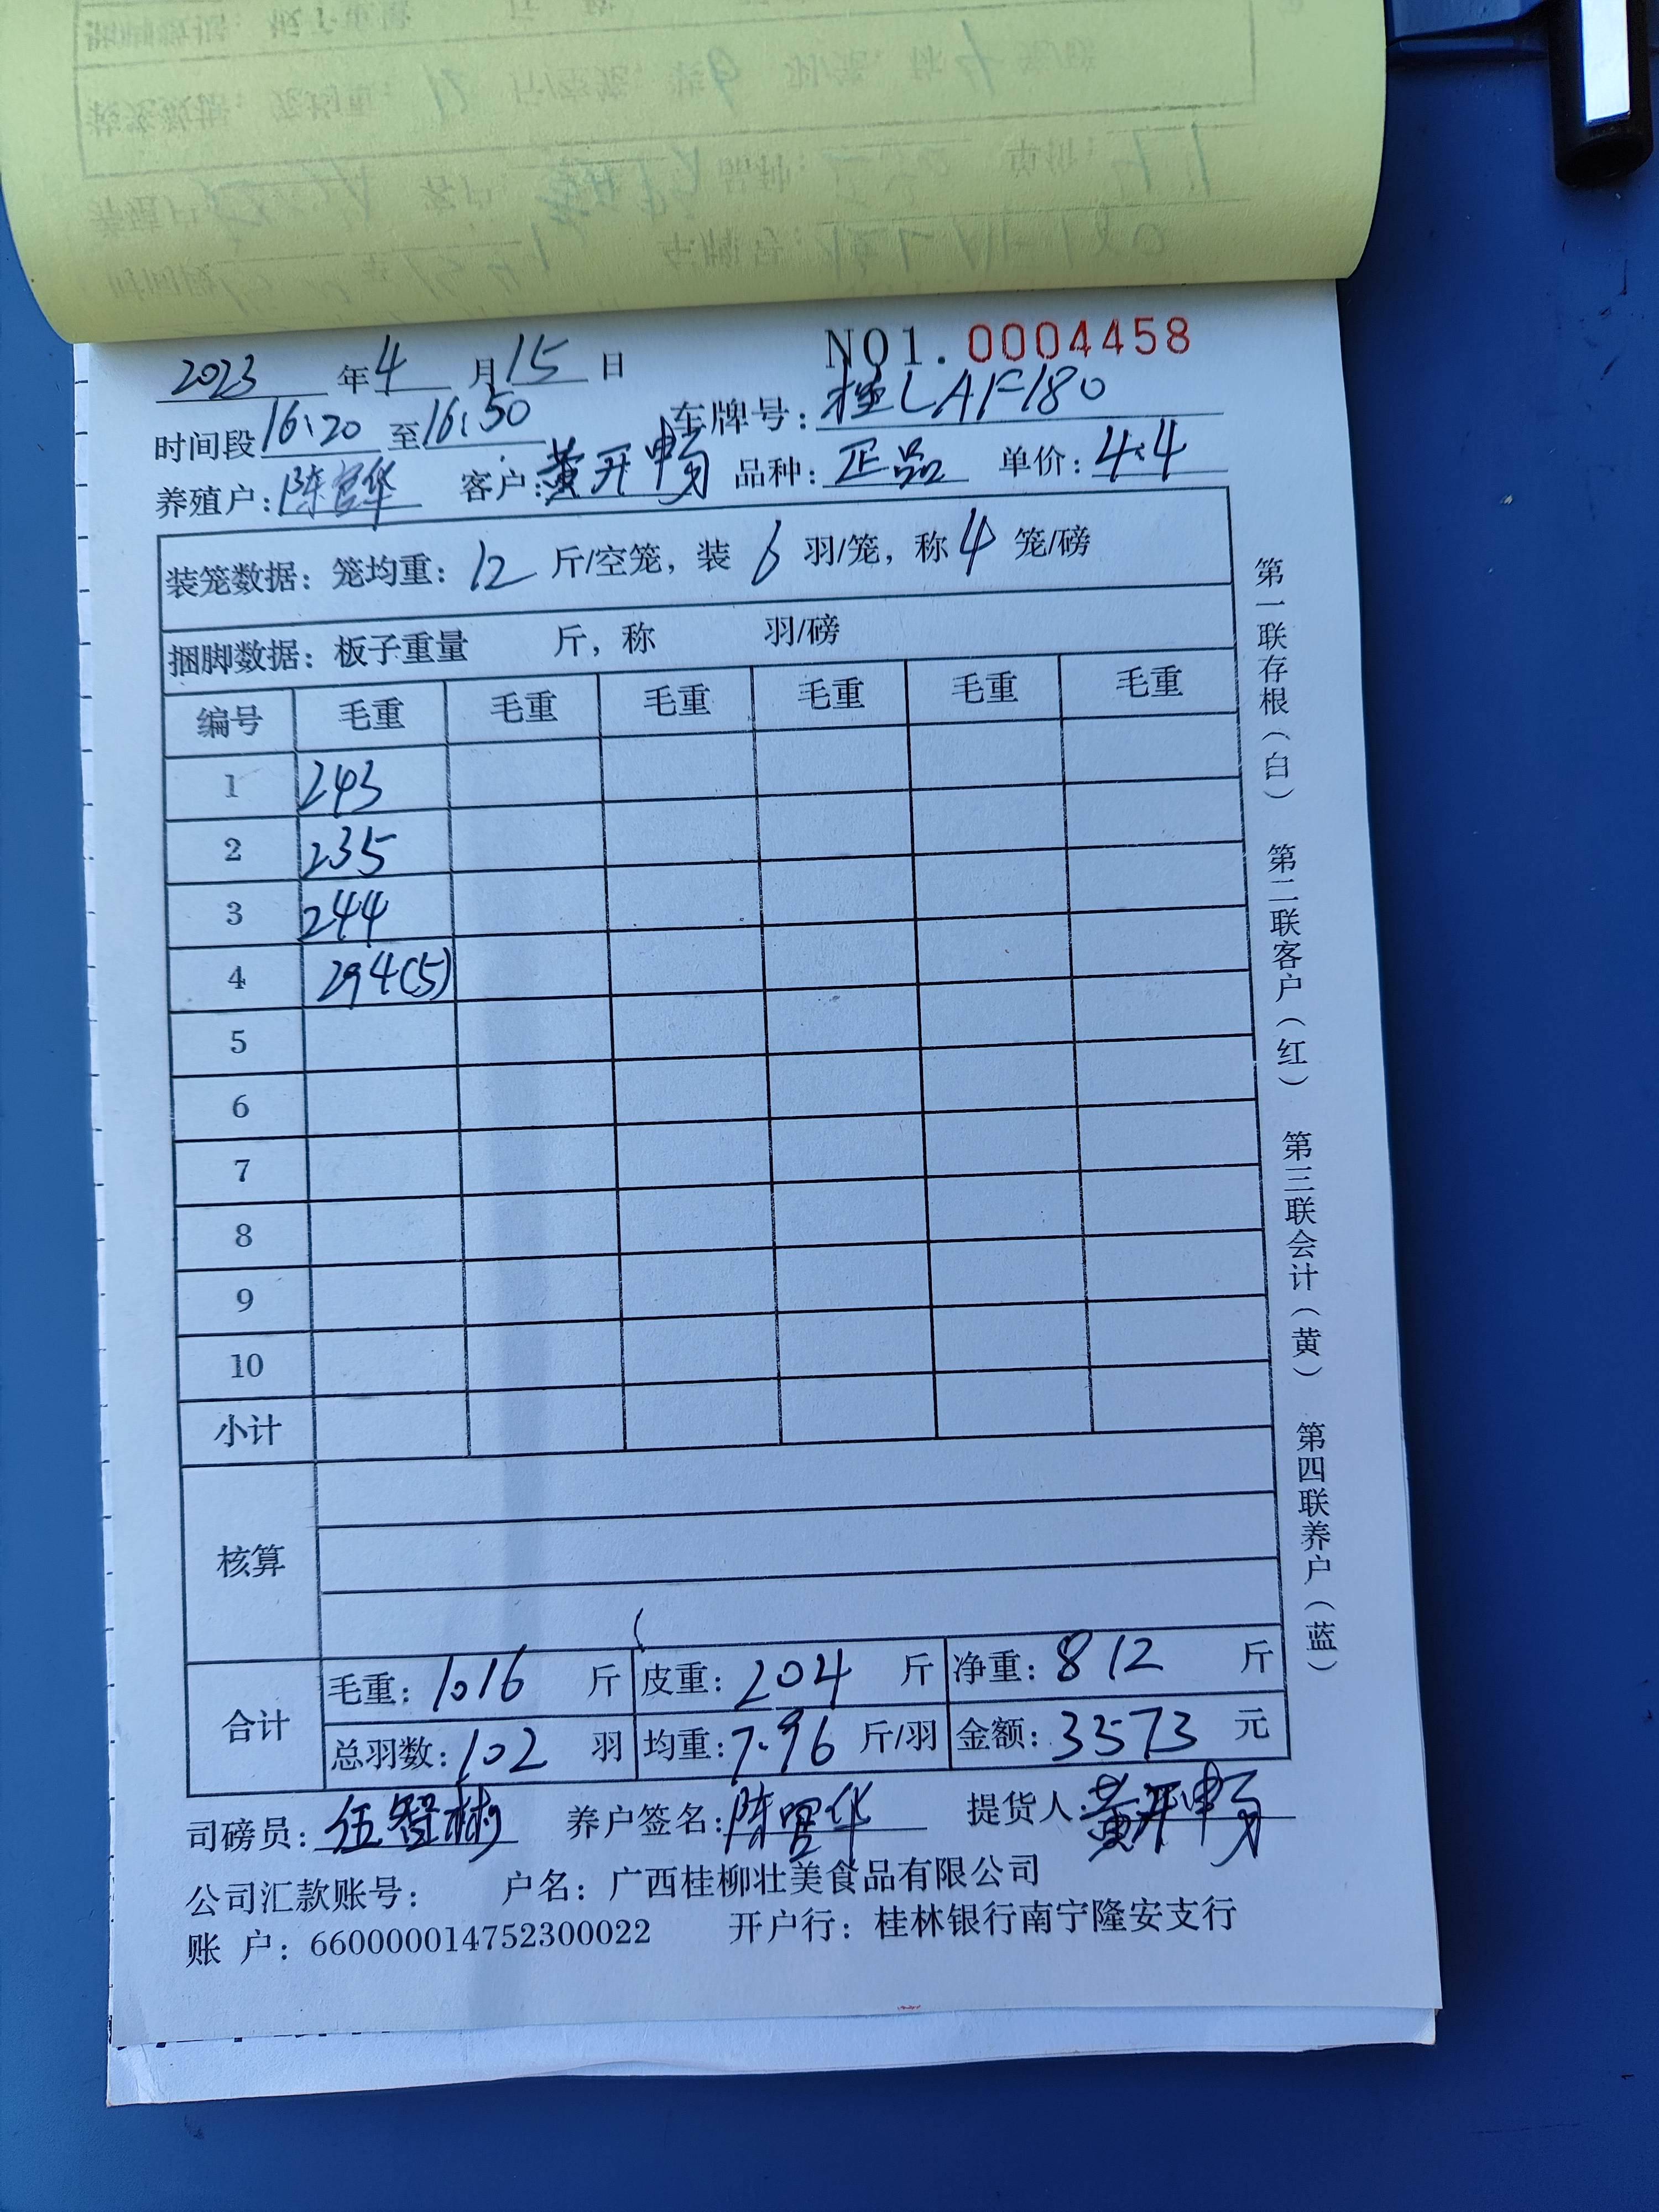 NO1. 0004458
2023 年 4 月 15 日
时间段 16:20 至 16:50 车牌号: 桂LAF180
养殖户: 陈官华 客户: 黄开畅 品种: 正品 单价: 4.4
装笼数据: 笼均重: 12 斤/空笼, 装 6 羽/笼, 称 4 笼/磅
捆脚数据: 板子重量 斤, 称 羽/磅
编号 毛重 毛重 毛重 毛重 毛重 毛重
1 243
2 235
3 244
4 294(5)
5
6
7
8
9
10
小计
核算
合计
毛重: 1016 斤 皮重: 204 斤 净重: 812 斤
总羽数: 102 羽 均重: 7.96 斤/羽 金额: 3573 元
司磅员: 伍智彬 养户签名: 陈官华 提货人: 黄开畅
公司汇款账号: 户名: 广西桂柳壮美食品有限公司
账 户: 660000014752300022 开户行: 桂林银行南宁隆安支行
第一联存根(白) 第二联客户(红) 第三联会计(黄) 第四联养户(蓝)